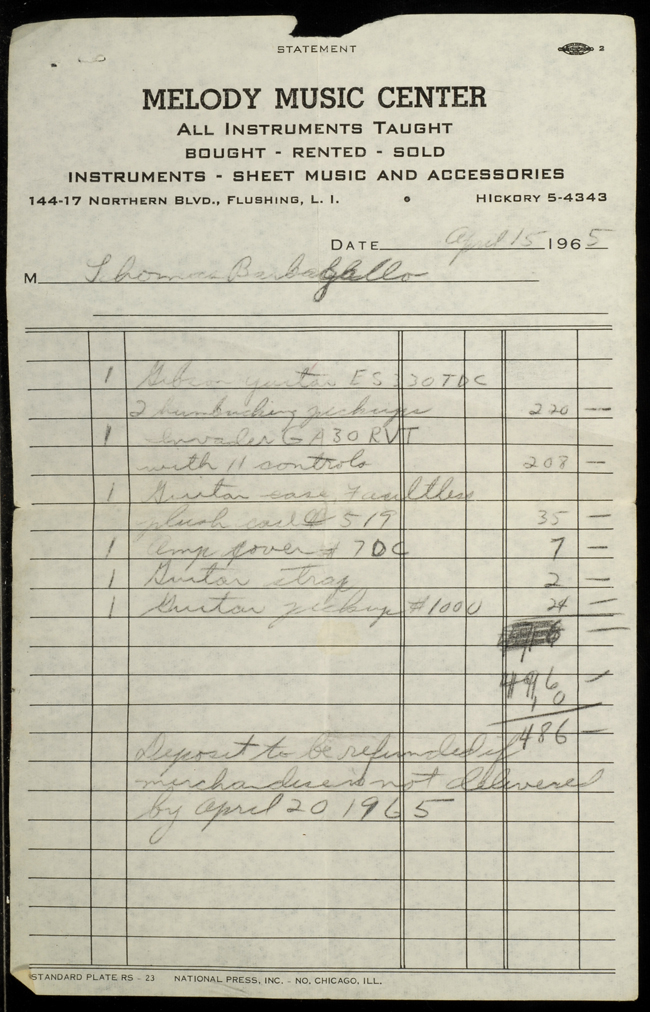 STATEMENT
2
MELODY MUSIC CENTER
ALL INSTRUMENTS TAUGHT
BOUGHT - RENTED - SOLD
INSTRUMENTS - SHEET MUSIC AND ACCESSORIES
144-17 NORTHERN BLVD., FLUSHING, L. I. • HICKORY 5-4343
DATE April 15 1965
M Thomas Barbagallo
1 Gibson guitar ES 330TDC
2 Humbucking pickups 220 —
1 Invader GA30RVT
with 11 controls 208 —
1 Guitar case, Faultless
plush case # 519 35 —
1 Amp cover # 7DC 7 —
1 Guitar strap 2 —
1 Guitar pickup #1000 24 —
496 —
10
486 —
Deposit to be refunded if
merchandise is not delivered
by April 20 1965
STANDARD PLATE RS - 23 NATIONAL PRESS, INC. - NO. CHICAGO, ILL.